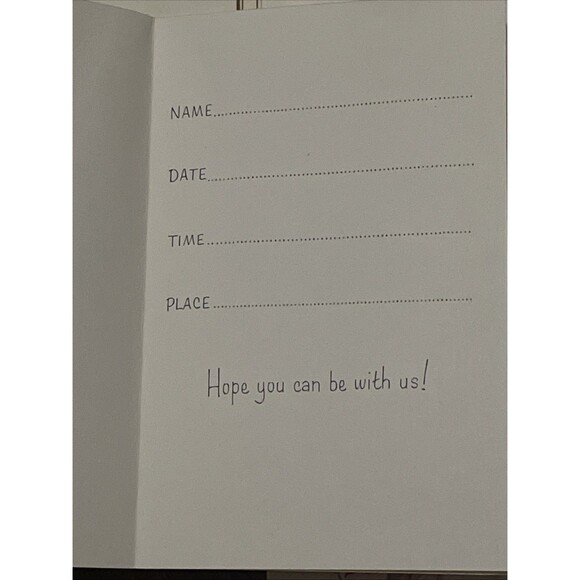 NAME........................................................
DATE........................................................
TIME........................................................
PLACE........................................................
Hope you can be with us!